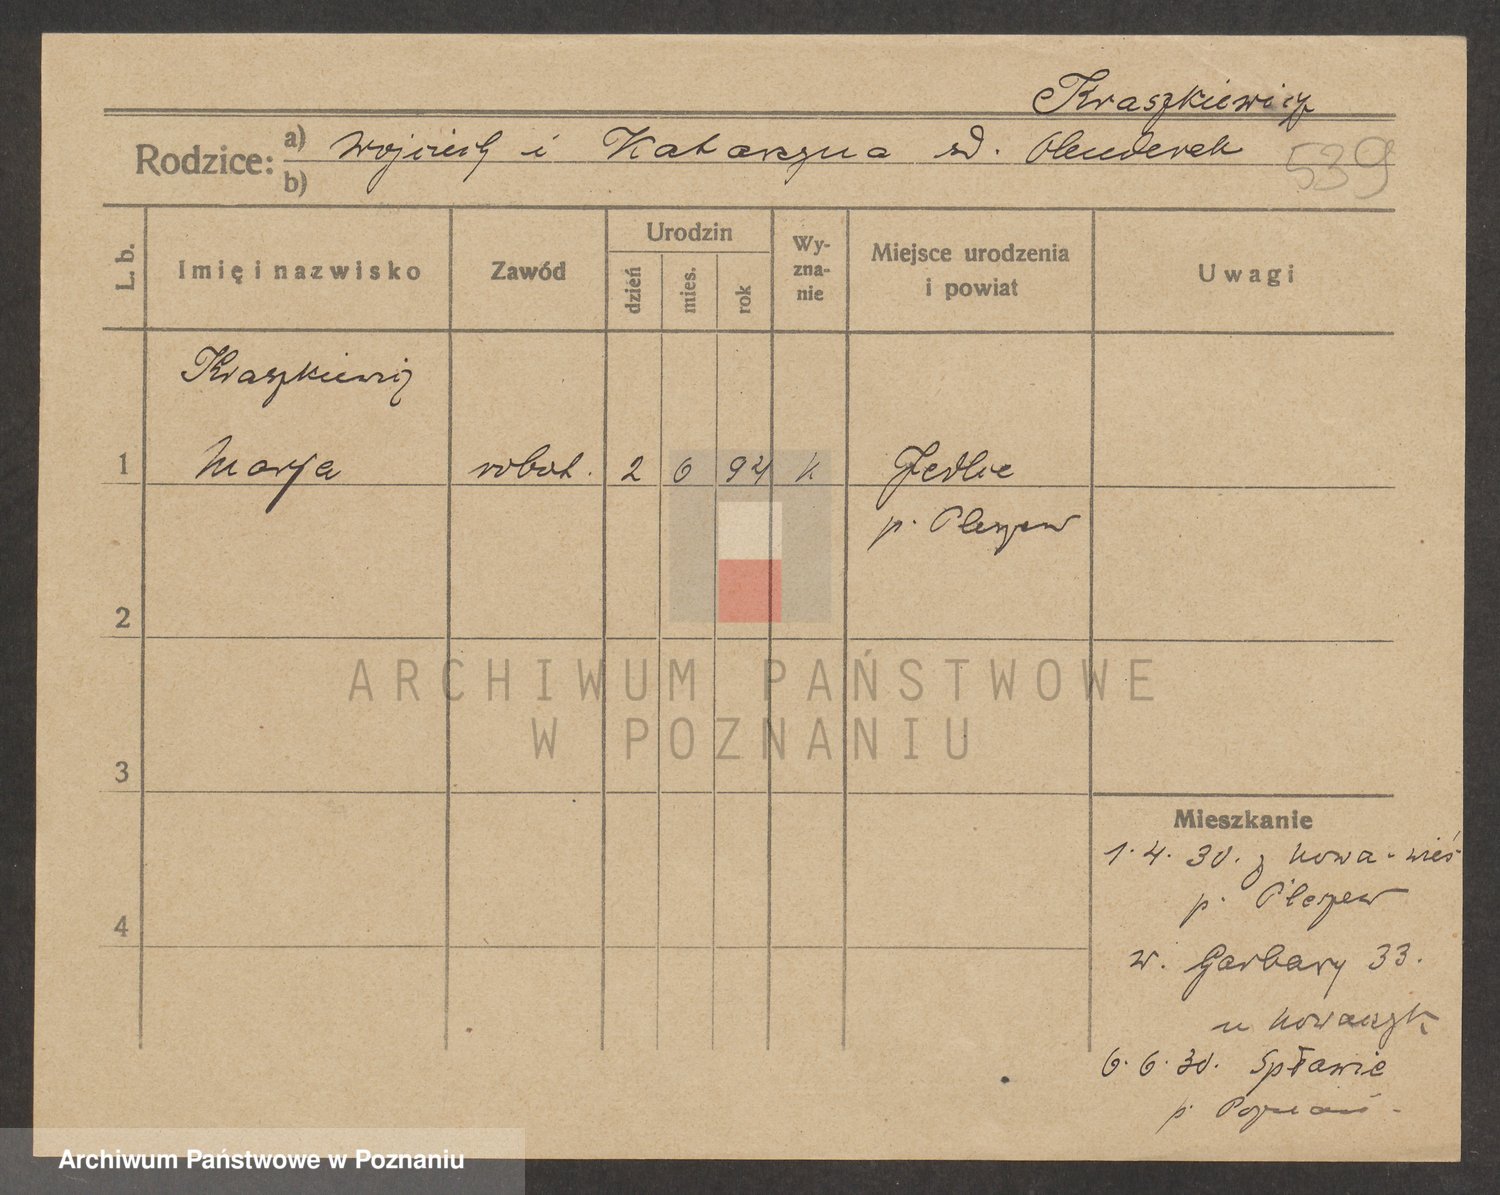 Kraszkiewicz
Rodzice: a) Wojciech i Katarzyna zd. Olenderek
b)
539
L. b.
Imię i nazwisko
Zawód
Urodzin
dzień
mies.
rok
Wy-
zna-
nie
Miejsce urodzenia
i powiat
Uwagi
Kraszkiewicz
1 Marja robot. 2 6 94 k Jedlec
p. Pleszew
2
ARCHIWUM PAŃSTWOWE
W POZNANIU
3
Mieszkanie
1.4.30. z Nowa-wieś
p. Pleszew
4
w. Garbary 33.
u Nowaczyk
6.6.30. Spławie
p. Poznań
Archiwum Państwowe w Poznaniu